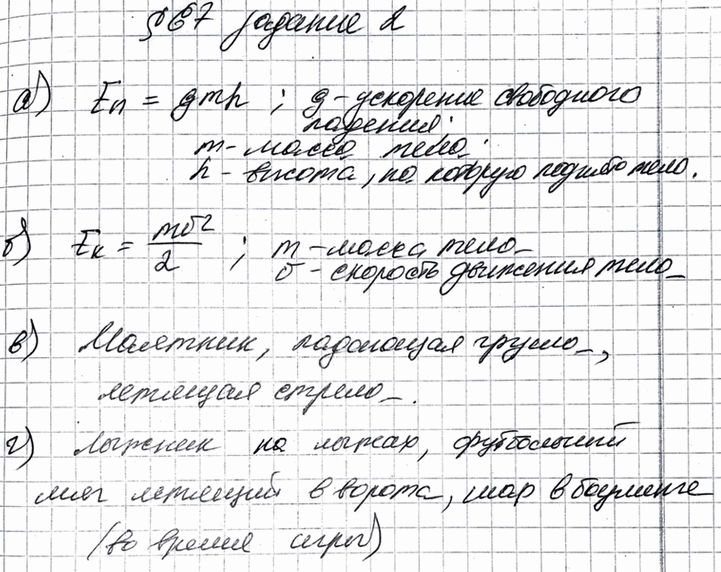 §67 задание 2
а) Eп = gmh ; g - ускорение свободного
падения;
m - масса тела;
h - высота, на которую поднято тело.
б) Eк = mv²/2 ; m - масса тела
v - скорость движения тела
в) Маятник, падающая груша,
летящая стрела.
г) Лыжник на лыжах, футбольный
мяч летящий в ворота, шар в боулинге
(во время игры)